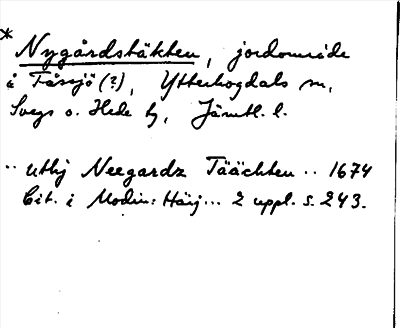 * Nygårdstäkten, jordområde
i Fåssjö (?), Ytterhogdals sn,
Svegs o. Hede tg, Jämtl. l.
.. uthj Neegardz Täächten .. 1674
Cit. i Modin: Härj... 2 uppl. s. 243.